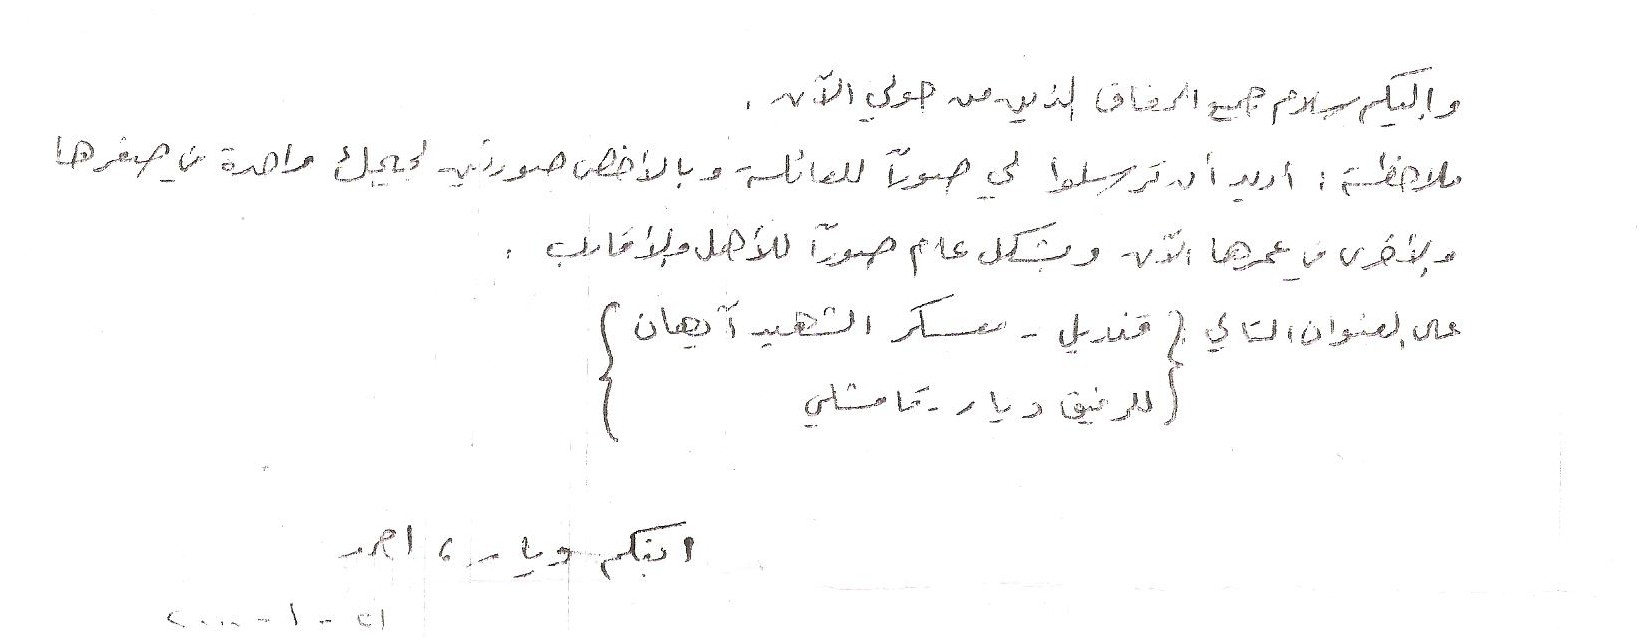 وإليكم سلام جميع الرفاق الذين من حولي الآن .
ملاحظة : أريد أن ترسلوا لي صوراً للعائلة وبالأخص صورتين لجيجك واحدة في صغرها
والأخرى في عمرها الآن وبشكل عام صوراً للأهل والأقارب .
على العنوان التالي { قنديل - معسكر الشهيد آيهان }
{ للرفيق ديار - قامشلي }
ابنكم ديار ،
٢١ - ١ - ٢٠٠٠